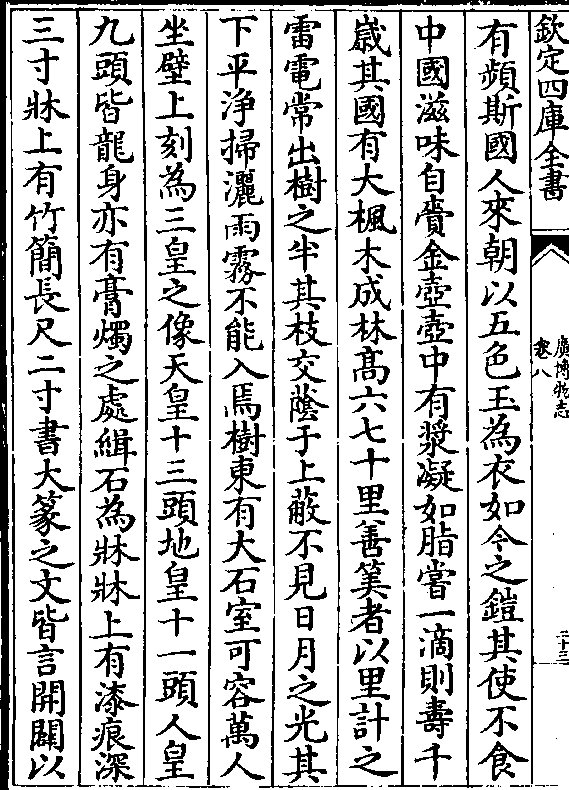 欽定四庫全書
廣博物志
卷八
二十三
有頻斯國人來朝以五色玉為衣如今之鎧其使不食
中國滋味自賫金壺壺中有漿凝如脂嘗一滴則壽千
嵗其國有大楓木成林髙六七十里善筭者以里計之
雷電常出樹之半其枝交蔭于上蔽不見日月之光其
下平淨掃灑雨霧不能入焉樹東有大石室可容萬人
坐壁上刻為三皇之像天皇十三頭地皇十一頭人皇
九頭皆龍身亦有膏燭之處緝石為牀牀上有漆痕深
三寸牀上有竹簡長尺二寸書大篆之文皆言開闢以